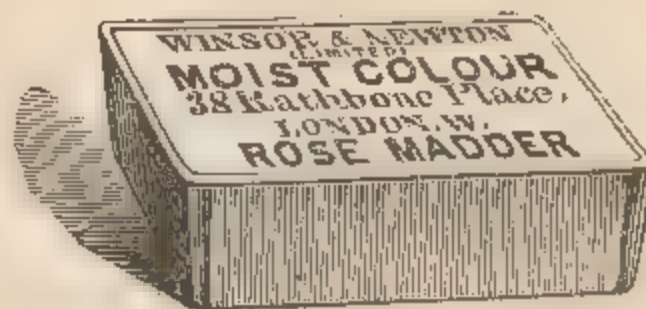 WINSOR & NEWTON
(LIMITED)
MOIST COLOUR
38 Rathbone Place,
LONDON, W.
ROSE MADDER